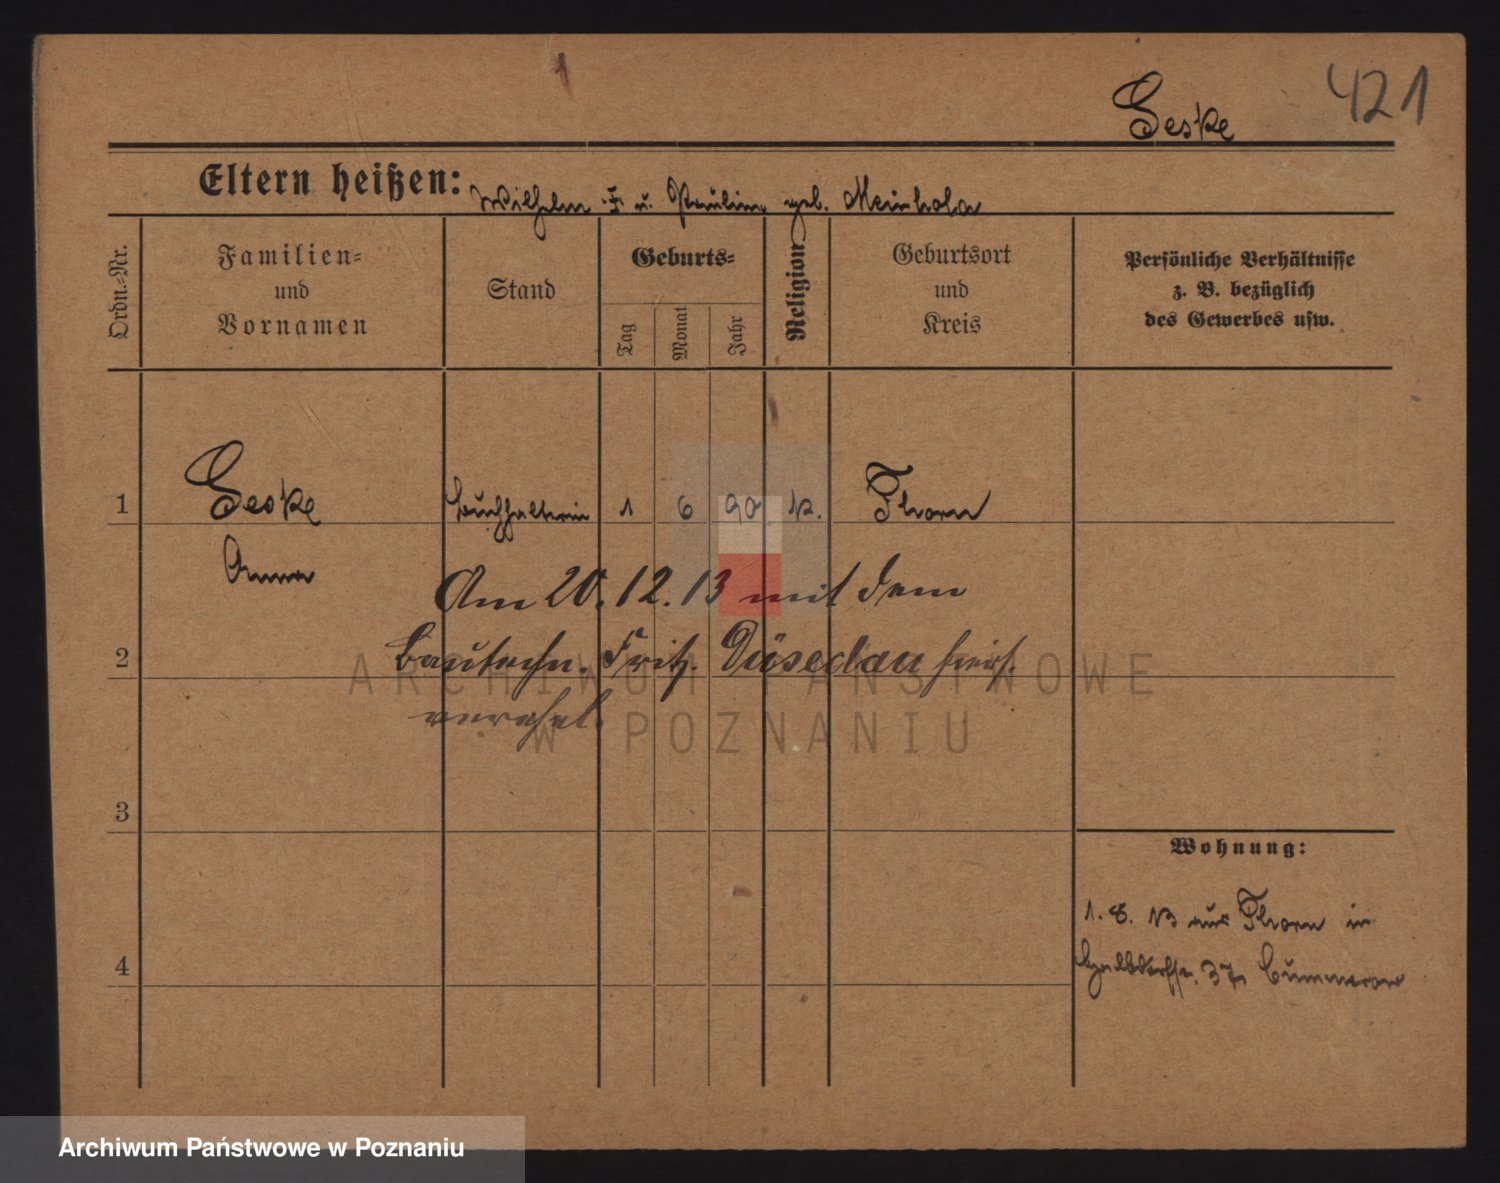 421
Geske
Eltern heißen: Wilhelm † u. Pauline geb. Meinhold
Ordn.-Nr.
Familien- und Vornamen
Stand
Geburts-
Tag
Monat
Jahr
Religion
Geburtsort und Kreis
Persönliche Verhältnisse z. B. bezüglich des Gewerbes usw.
1 Geske Buchhalterin 1 6 90 k. Thorn
Anna
Am 20.12.13 mit dem
2 Bautechn. Fritz Düsedau hier
verehel.
3
Wohnung:
1. 8. 13 aus Thorn in
4 37, Cummerow
ARCHIWUM PAŃSTWOWE
W POZNANIU
Archiwum Państwowe w Poznaniu